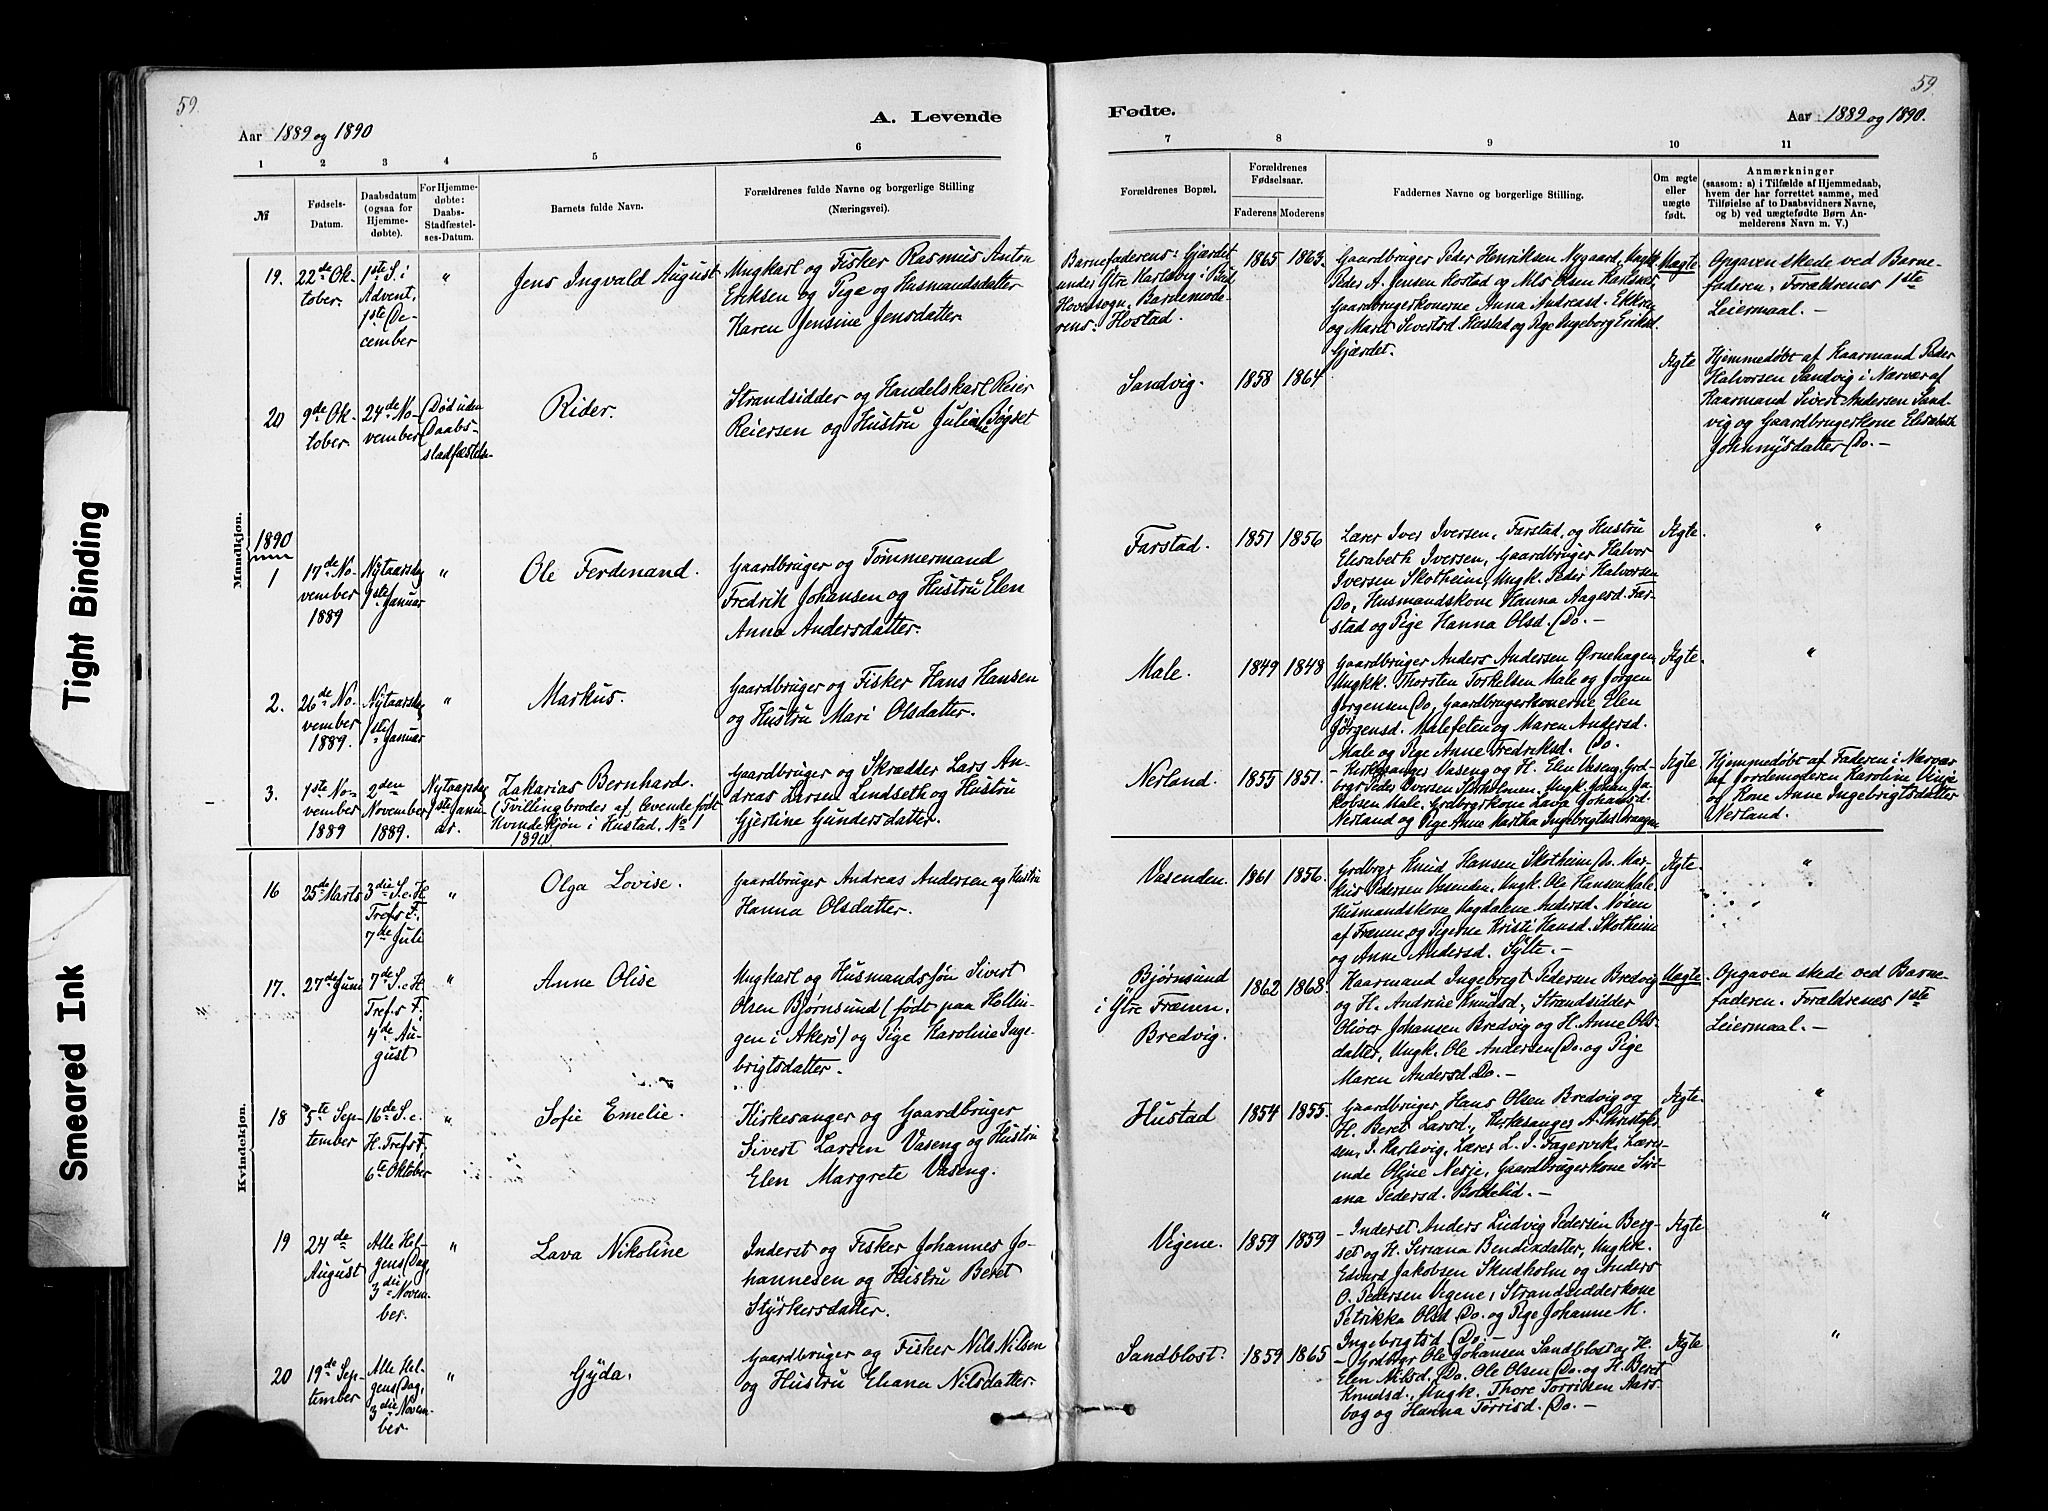 59.
59.
A. Levende
Fødte.
Aar 1889 og 1890
Aar 1889 og 1890.
1 2 3 4 5 6
7 8 9 10 11
№
Fødsels-
Datum.
Daabsdatum
(ogsaa for
Hjemme-
døbte).
For Hjemme-
døbte:
Daabs-
Stadfæstel-
ses-Datum.
Barnets fulde Navn.
Forældrenes fulde Navne og borgerlige Stilling
(Næringsvei).
Forældrenes Bopæl.
Forældrenes
Fødselsaar.
Faderens Moderens
Faddernes Navne og borgerlige Stilling.
Om ægte
eller
uægte
født.
Anmærkninger
(saasom: a) i Tilfælde af Hjemmedaab,
hvem der har forrettet samme, med
Tilføielse af to Daabsvidners Navne,
og b) ved uægtefødte Børn An-
melderens Navn m. V.)
Mandkjøn.
19.
22de Ok-
tober.
1ste S. i
Advent,
1ste De-
cember
"
Jens Ingvald August
Ungkarl og Fisker Rasmus Anton
Eriksen og Pige og Husmandsdatter
Karen Jensine Jensdatter.
Barnefaderens: Gjærdet
under Ytre Karlsvig i Bud
Hovedsogn, Barnemode-
rens: Hostad.
1865 1863.
Gaardbruger Peder Henriksen Nygaard, Ungk.
Peder A. Jensen Hostad og Nils Olsen
Gaardbrugerkonerne Anna Andreasd. Ekkren
og Maret Sivertsd. Hustad og Pige Ingeborg Eriksd.
Gjærdet.
Uægte
Opgaven skede ved Barne-
faderen. Forældrenes 1ste
Leiermaal. —
20
9de Ok-
tober.
24de No-
vember
Død uden
Daabs-
stadfæstelse
Rider.
Strandsidder og Handelskarl Reier
Reiersen og Hustru Juliane Bogset
Sandvig.
1858 1864
Ægte
Hjemmedøbt af Kaarmand Peder
Halvorsen Sandvig i Nærvær af
Kaarmand Sivert Andersen Sand-
vig og Gaardbrugerkone Elisabeth
Johnnysdatter Do. —
1890
1
17de No-
vember
1889
Nytaarsdag
1ste Januar
"
Ole Ferdinand.
Gaardbruger og Tømmermand
Fredrik Johansen og Hustru Elen
Anna Andersdatter.
Farstad.
1851 1856
Lærer Iver Iversen, Farstad, og Hustru
Elisabeth Iversen, Gaardbruger Halvor
Iversen Skotheim, Ungk. Peder Halvorsen
Do, Husmandskone Hanna Aagesd. Far-
stad og Pige Hanna Olsd. Do. —
Ægte.
"
2.
26de No-
vember
1889.
Nytaarsdag
1ste Januar
"
Markus.
Gaardbruger og Fisker Hans Hansen
og Hustru Mari Olsdatter.
Male.
1849 1848
Gaardbruger Anders Andersen Ørnehagen,
Ungkk. Thorsten Torkelsen Male og Jørgen
Jørgensen Do, Gaardbrugerkonerne Elen
Jørgensd. Malefeten og Maren Andersd.
Male og Pige Anne Fredriksd. Do.
Ægte.
"
3.
1ste No-
vember
1889
2den
November
1889.
Nytaarsdag
1ste Janu-
ar.
Zakarias Bernhard.
(Tvillingbroder af levende født
Kvindekjøn i Hustad, No 1
1890)
Gaardbruger og Skrædder Lars An-
dreas Larsen Lindseth og Hustru
Gjertine Gundersdatter.
Nerland.
1855 1851.
— Kirkesanger Vaseng og H. Elen Vaseng, Grd-
brgr Peder Iversen Storholmen, Ungk. Johan Ja-
kobsen Male. Grdbrgrkone Lava Johansd.
Nerland og Pige Anne Martha Ingebrigtsd.
Ægte
Hjemmedøbt af Faderen i Nærvær
af Jordemoderen Karoline Vinje
og Kone Anne Ingebrigtsdatter
Nerland.
Kvindekjøn.
16
25de Marts
3die S. e. H.
Trefs. F.
7de Juli
"
Olga Lovise.
Gaardbruger Andreas Andersen og Hustru
Hanna Olsdatter.
Vasenden.
1861 1856.
Grdbrgr Knud Hansen Skotheim, Do. Mar-
kus Pedersen Vasenden. Ungk. Ole Hansen Male.
Husmandskone Magdalene Andersd. Nøsen
af Frænen og Pigerne Kristi Hansd. Skotheim
og Anne Andersd. Sylte. —
Ægte.
"
17.
27de Juni
7de S. e. H.
Trefs. F.
4de Au-
gust
"
Anne Olise
Ungkarl og Husmandssøn Sivert
Olsen Bjørnsund (født paa Hollin-
gen i Akerø) og Pige Karoline Inge-
brigtsdatter.
Bjørnsund
i Ytre Frænen.
Bredvig.
1862 1868.
Kaarmand Ingebrigt Pedersen Bredvig
og H. Andrine Knudsd., Strandsidder
Oliver Johansen Bredvig og H. Anne Ols-
datter, Ungk. Ole Andersen Do. og Pige
Maren Andersd. Do. —
Uægte
Opgaven skede ved Barne-
faderen. Forældrenes 1ste
Leiermaal. —
18
5te Sep-
tember
16de S. e.
H. Trefs. F.
6te Oktober
"
Sofie Emelie.
Kirkesanger og Gaardbruger
Sivert Larsen Vaseng og Hustru
Elen Margrete Vaseng.
Hustad
1854 1855.
Gaardbruger Hans Olsen Bredvig og
H. Beret Larsd., Kirkesanger A. Christof-
sen, I. Karlsvig, Lærer L. I. Fagervik, Lærer-
inde Oline Nerje, Gaardbrugerkone Siri-
ana Pedersd. Bollelid. —
Ægte
"
19
24de
August
Alle Hel-
gens Dag,
3die Novem-
ber.
"
Lava Nikoline
Inderst og Fisker Johannes Jo-
hannesen og Hustru Beret
Styrkersdatter.
Vigene.
1859 1859
— Inderst Anders Ludvig Pedersen Berg-
set og H. Seriana Bendixdatter, Ungkk.
Edvard Jakobsen Skudholm og Anders
O. Pedersen Vigene, Strandsidderkone
Petrikka Olsd Do. og Pige Johanne M.
Ingebrigtsd. Do. —
Ægte
"
20
19de Sep-
tember
Alle Hel-
gens Dag,
3die Novem-
ber.
"
Gyda.
Gaardbruger og Fisker Nils Nilsen
og Hustru Eliana Nilsdatter.
Sandblost.
1859 1865
— Grdbrgr Ole Johansen Sandblost og H.
Elen Nilsd. Do. Ole Olsen Do. og H. Beret
Knudsd., Ungk. Thore Torrisen Aars-
bog og Hanna Tørrisd. Do. —
Ægte.
"
Tight Binding
Smeared Ink